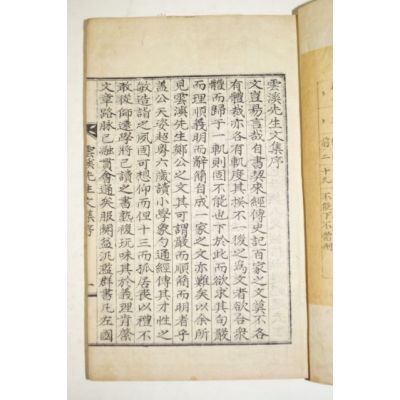 雲溪先生文集序
文豈易言哉自書契來經傳史記百家之文莫不各
有體裁亦各有軌度其揆不一後之爲文者欲合衆
體而歸于一軌則固不能也下於此而欲求其句嚴
而理順義明而辭簡自成一家之文亦難矣以余所
見雲溪先生鄭公之文其可謂嚴而順簡而明者乎
蓋公天姿超粤六歲讀小學象勺通經傳其才性之
敏造詣之夙固可想仰而但十三而孤居喪以禮不
敢從師遠學將已讀之書熟復玩味其於義理肯綮
文章路脉已融貫會通矣服闋益汎濫群書凡左國
雲溪先生文集序
一